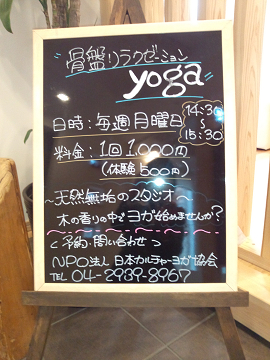 骨盤リラクゼーション
yoga
日時：毎週月曜日 14:30～15:30
料金：1回1,000円
(体験500円)
～天然無垢のスタジオ～
木の香りの中でヨガ始めませんか？
＜予約・問い合わせ＞
NPO法人 日本カルチャーヨガ協会
TEL 04-2939-8967